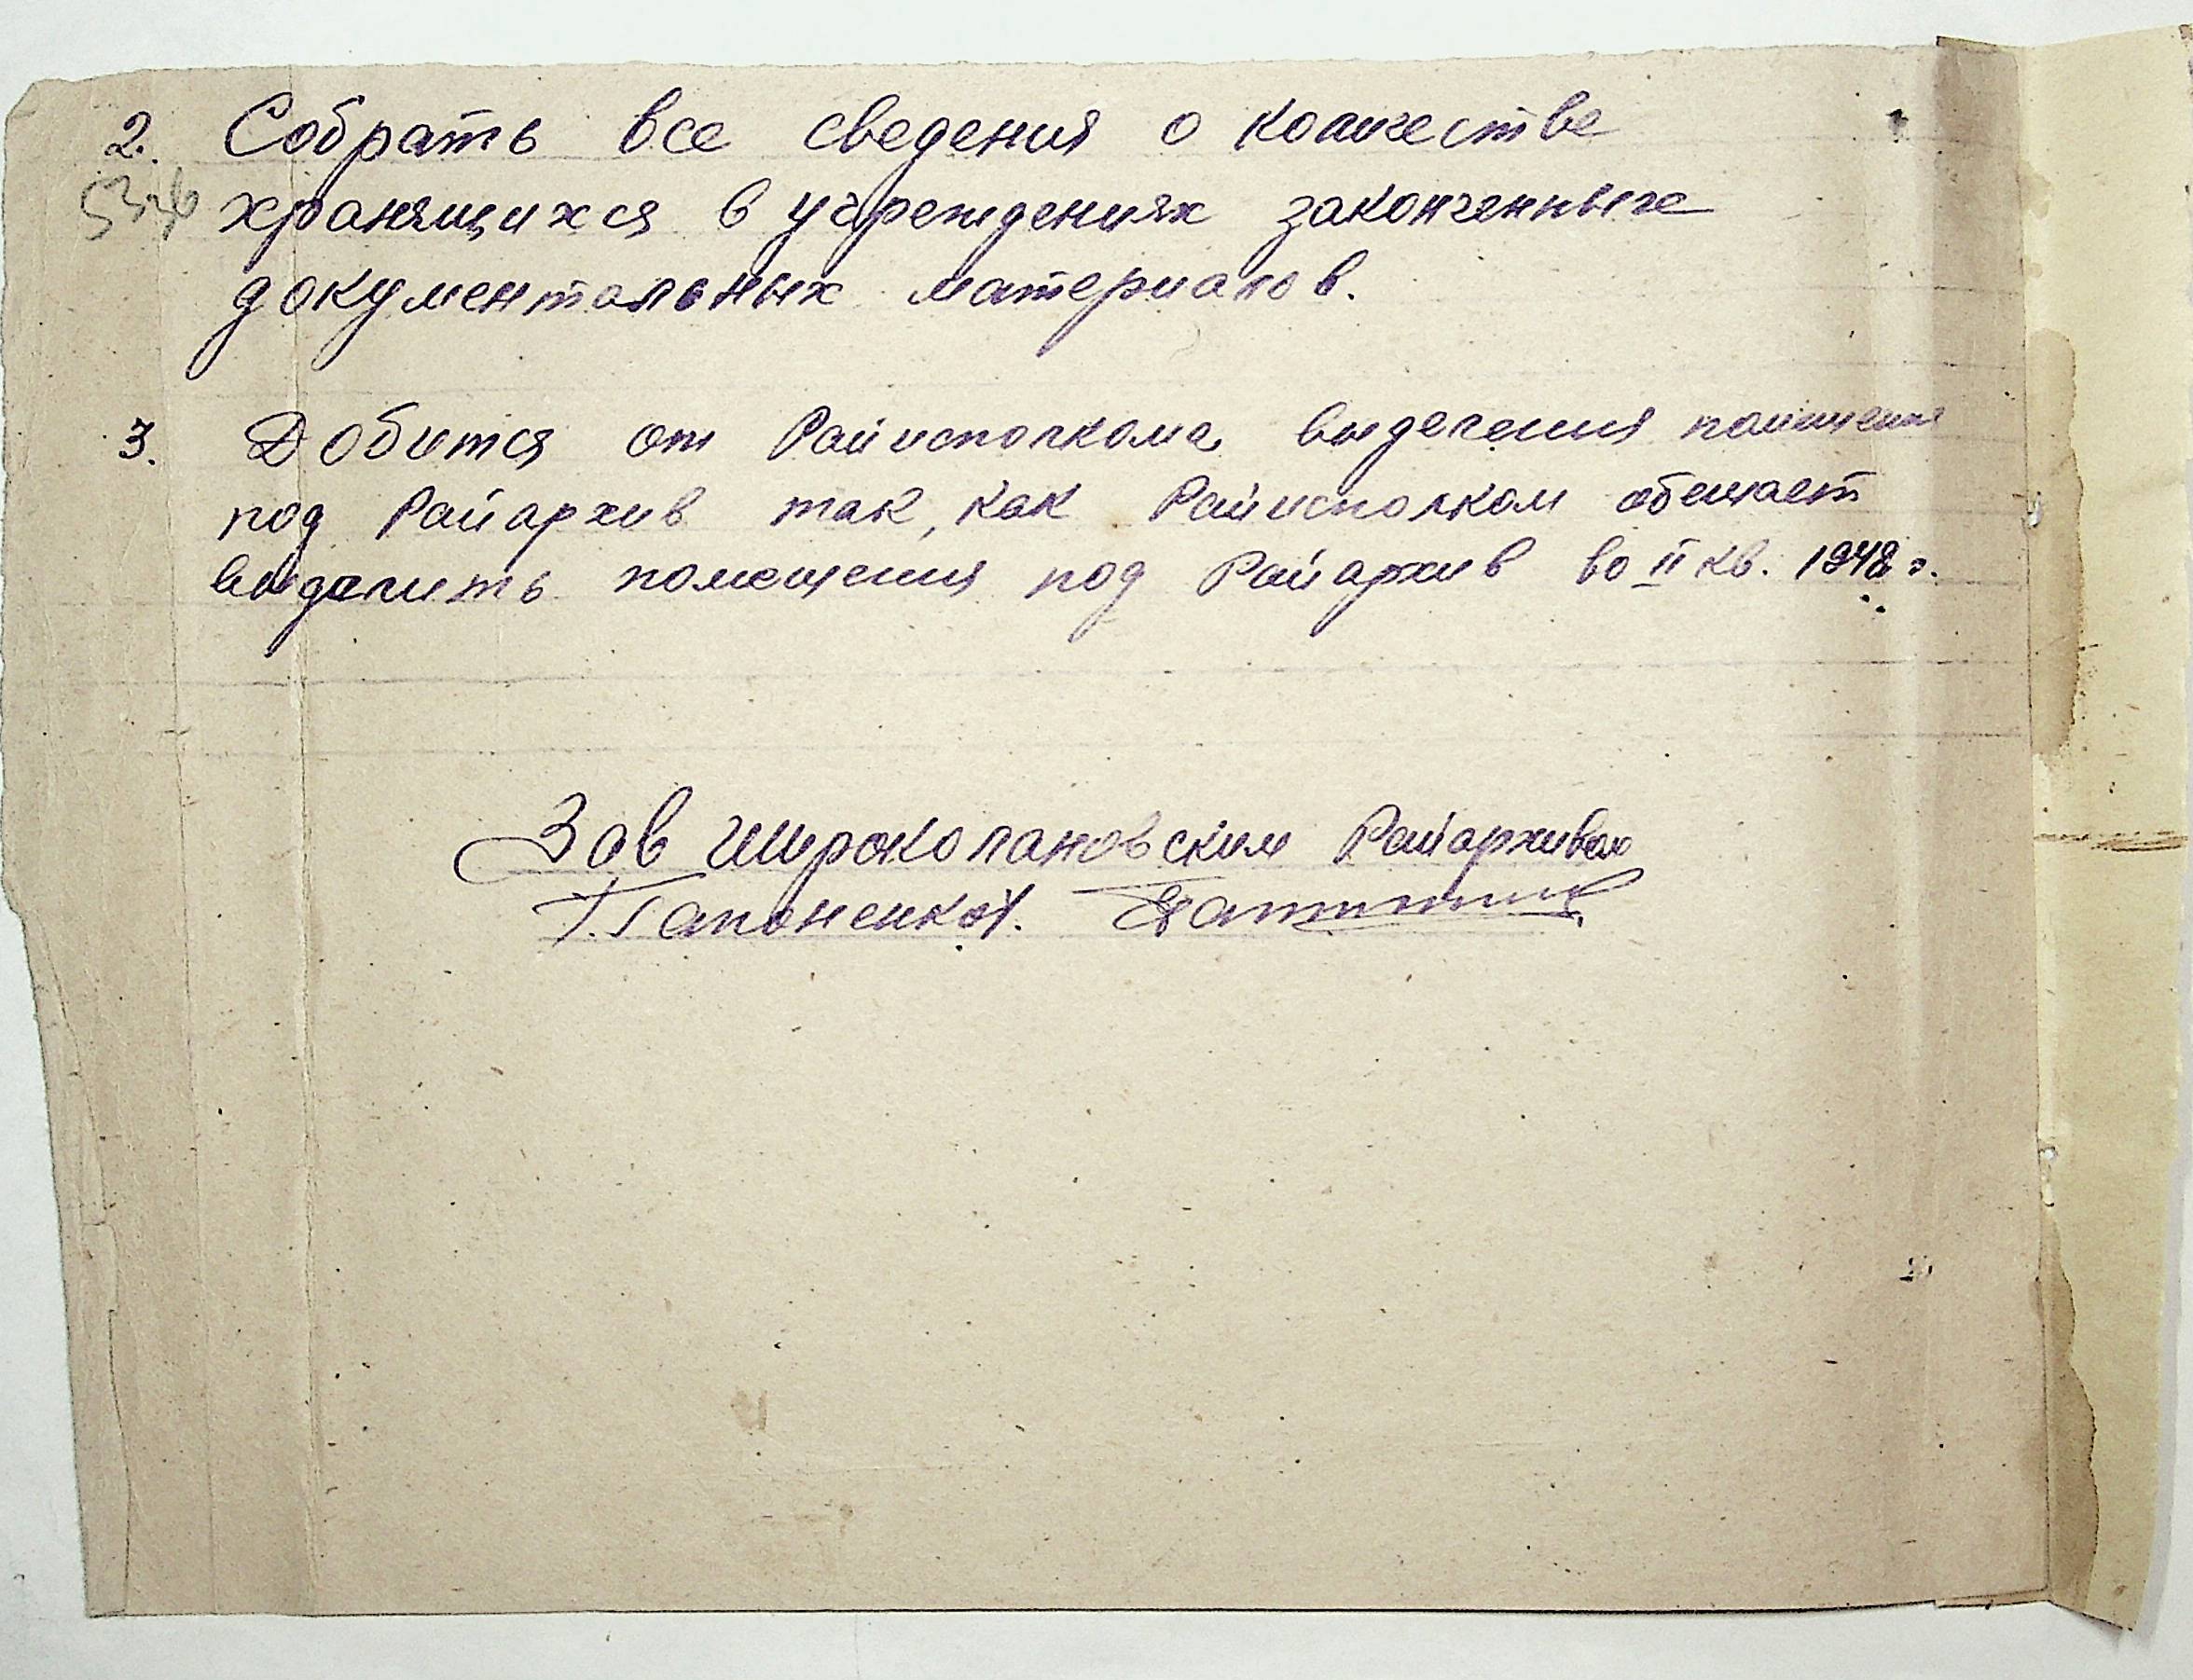 2. Собрать все сведения о количестве
хранящихся в учреждениях законченных
документальных материалов.
3. Добится от Райисполкома выделения помищения
под Райархив так, как Райисполком обещает
выделить помещения под Райархив во II кв. 1948 г.
Зав Широколановским Райархивом
Гапоненко